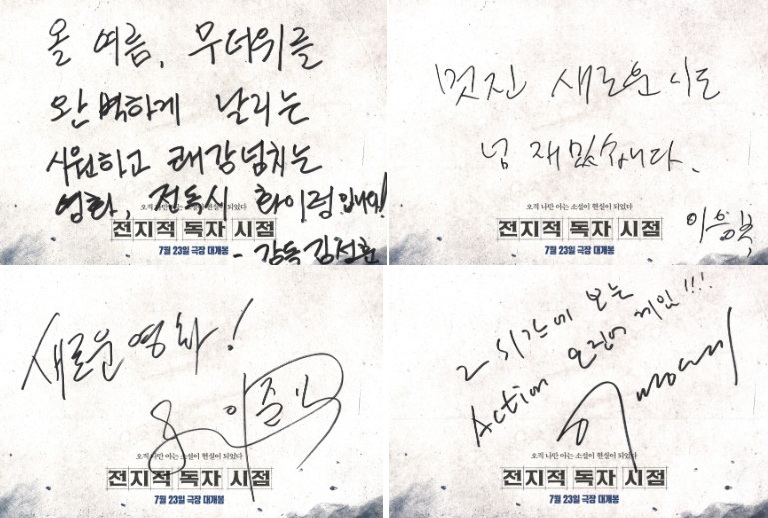 올 여름, 무더위를
완벽하게 날리는
시원하고 쾌감넘치는
영화, 전독시 화이팅입니다!
오직 나만 아는 소설이 현실이 되었다
전지적 독자 시점
7월 23일 극장 대개봉
- 감독 김선훈
멋진 새로운 시도
넘 재밌습니다.
오직 나만 아는 소설이 현실이 되었다
전지적 독자 시점
이응복
7월 23일 극장 대개봉
새로운 영화!
이준익
오직 나만 아는 소설이 현실이 되었다
전지적 독자 시점
7월 23일 극장 대개봉
2시간에 보는
Action 오징어 게임!!!
오직 나만 아는 소설이 현실이 되었다
전지적 독자 시점
7월 23일 극장 대개봉